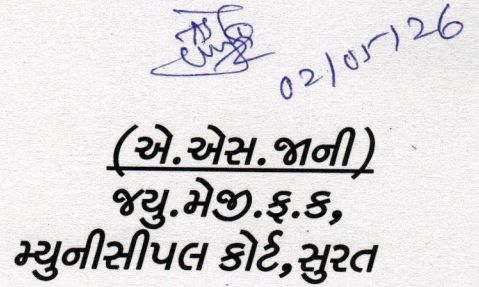 02/05/26
(એ.એસ.જાની)
જયુ.મેજી.ફ.ક,
મ્યુનીસીપલ કોર્ટ,સુરત